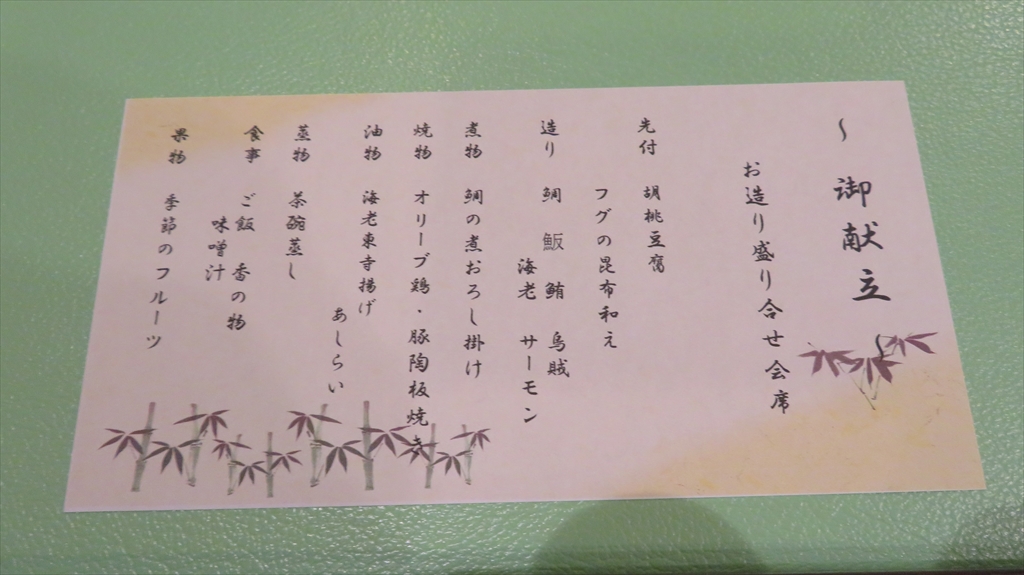 ～ 御献立 ～
お造り盛り合せ会席
先付 胡桃豆腐
フグの昆布和え
造り 鯛 鯢 鮪 烏賊
海老 サーモン
煮物 鯛の煮おろし掛け
焼物 オリーブ鶏・豚陶板焼き
油物 海老東寺揚げ
あしらい
蒸物 茶碗蒸し
食事 ご飯 香の物
味噌汁
果物 季節のフルーツ